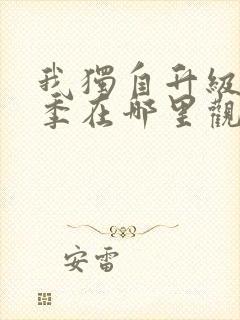 我獨自升級
季在哪里觀
安雷